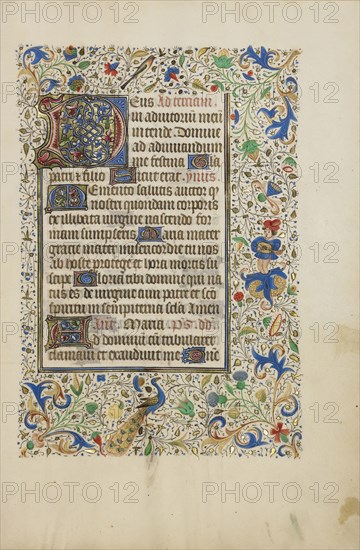 Deus Ad
in adiutoriū meū
intende Domine
ad adiuuandum
me festina Gla
patri et filio Sicut erat ymus
Memento salutis auctor q
nostri quondam corporis
ex illibata uirgine nascendo for
mam sumpseris Maria mater
gracie mater misericordie tu nos
ab hoste protege et hora mortis su
scipe Gloria tibi domine qui na
tus es de uirgine cum patre et sc̄o
spiritu in sempiterna secla Amen
Maria ps
Ad dominū cū tribularer
clamaui et exaudiuit me
PHOTO 12